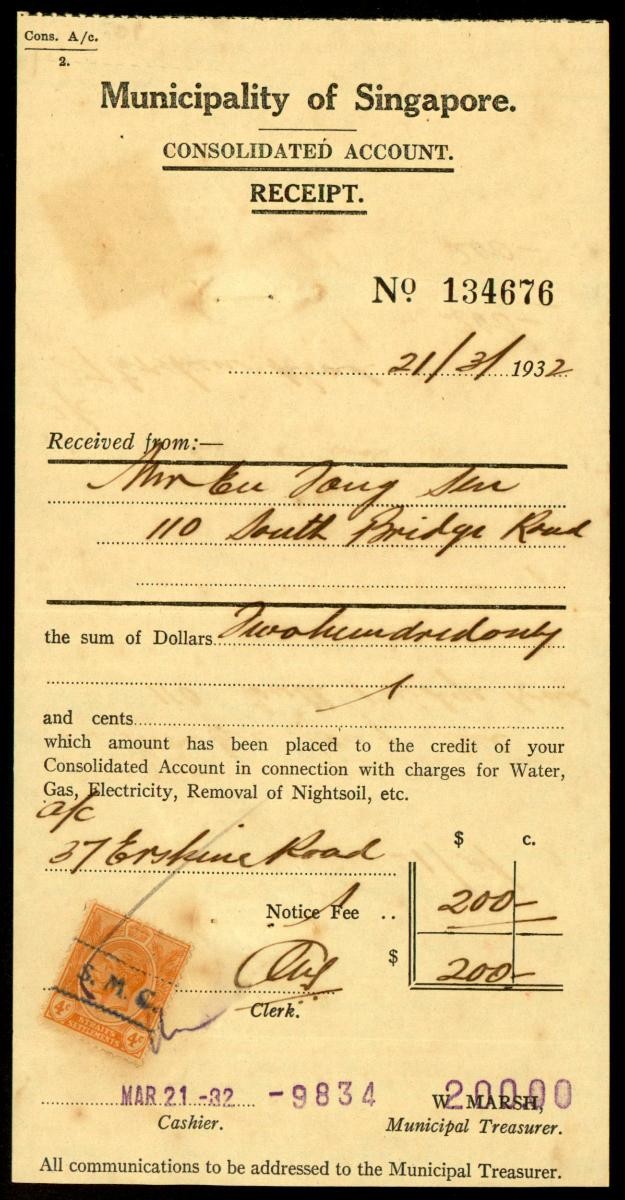 Cons. A/c.
2.
Municipality of Singapore.
CONSOLIDATED ACCOUNT.
RECEIPT.
Nº 134676
21/3/1932
Received from:—
Mr Eu Tong Sen
110 South Bridge Road
the sum of Dollars Two hundred only
and cents
which amount has been placed to the credit of your
Consolidated Account in connection with charges for Water,
Gas, Electricity, Removal of Nightsoil, etc.
a/c
37 Erskine Road
$ c.
Notice Fee .. 200-
$ 200-
Clerk.
S. M. C.
4c STRAITS SETTLEMENTS 4c
MAR 21 -32 -9834 20000
W. MARSH,
Cashier. Municipal Treasurer.
All communications to be addressed to the Municipal Treasurer.